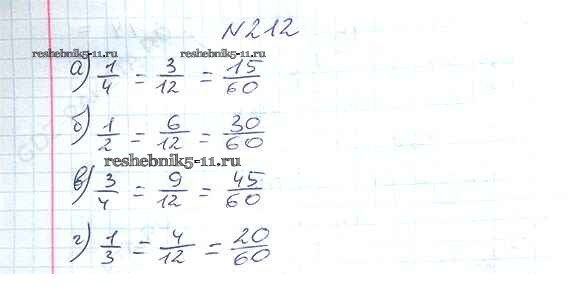 N212
reshebnik5-11.ru
а) 1/4 = 3/12 = 15/60
б) 1/2 = 6/12 = 30/60
reshebnik5-11.ru
в) 3/4 = 9/12 = 45/60
г) 1/3 = 4/12 = 20/60